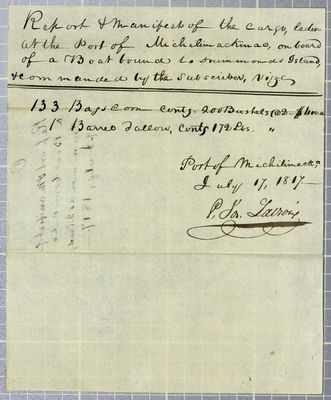 Report & Manifest of the Cargo, laden
at the Port of Michilimackinac, on board
of a Boat bound to Drummonds Island,
& commanded by the Subscriber, Viz.
133 Bags Corn Contg. 200 Bushels
1 Barrel Tallow, Contg 172 Lbs. "
Port of Michilimackc.
July 17, 1817—
P. Jos.